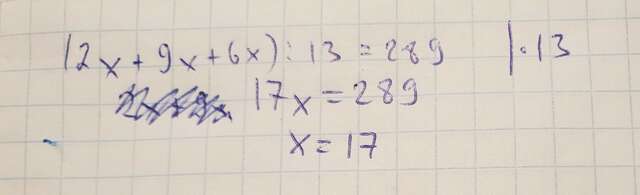 (2x + 9x + 6x) : 13 = 289 |·13
17x = 289
x = 17